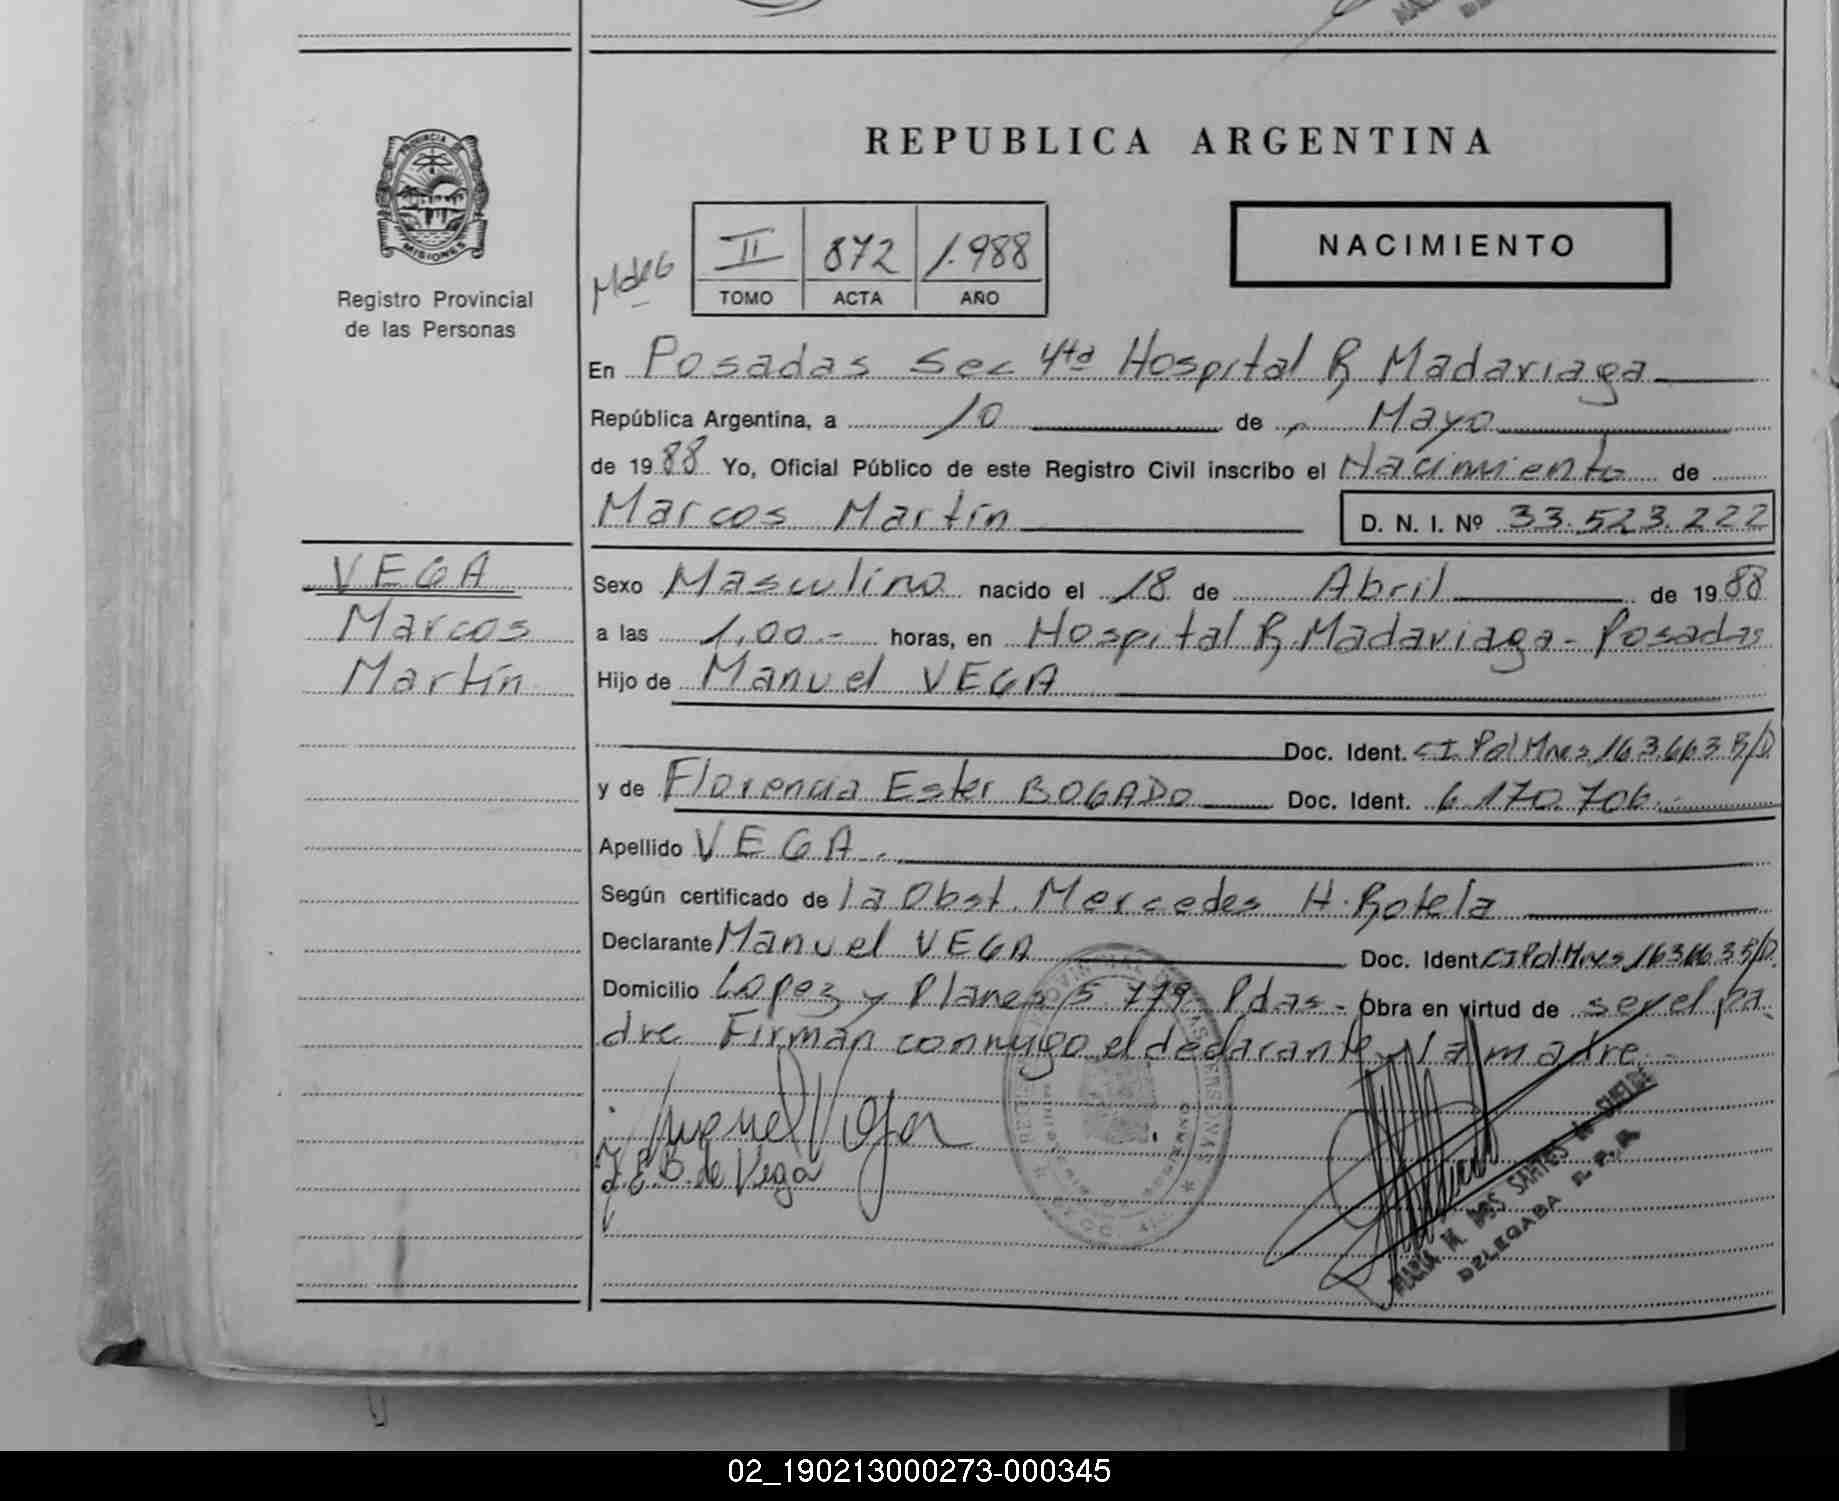 REPUBLICA ARGENTINA
PROVINCIA DE
MISIONES
Registro Provincial
de las Personas
II 872 1.988
TOMO ACTA AÑO
NACIMIENTO
En Posadas Sec 4ta Hospital R Madariaga
República Argentina, a 10 de Mayo
de 1988 Yo, Oficial Público de este Registro Civil inscribo el Nacimiento de
Marcos Martín D. N. I. Nº 33.523.222
VEGA
Marcos
Martín
Sexo Masculino nacido el 18 de Abril de 1988
a las 1,00.- horas, en Hospital R. Madariaga - Posadas
Hijo de Manuel VEGA
Doc. Ident. CI Pol Mnes 163.663 R/D
y de Florencia Ester BOGADO Doc. Ident. 6.170.706.-
Apellido VEGA.
Según certificado de la Obst. Mercedes H. Rotela
Declarante Manuel VEGA Doc. Ident CI Pol Mnes 163663 R/D.
Domicilio Lopez y Planes 5 779 Pdas.- Obra en virtud de ser el pa
dre Firman conmigo el declarante y la madre.-
Manuel Vega
F.E.B. de Vega
MARIA M. DOS SANTOS
DELEGADA R. P. P.
02_190213000273-000345